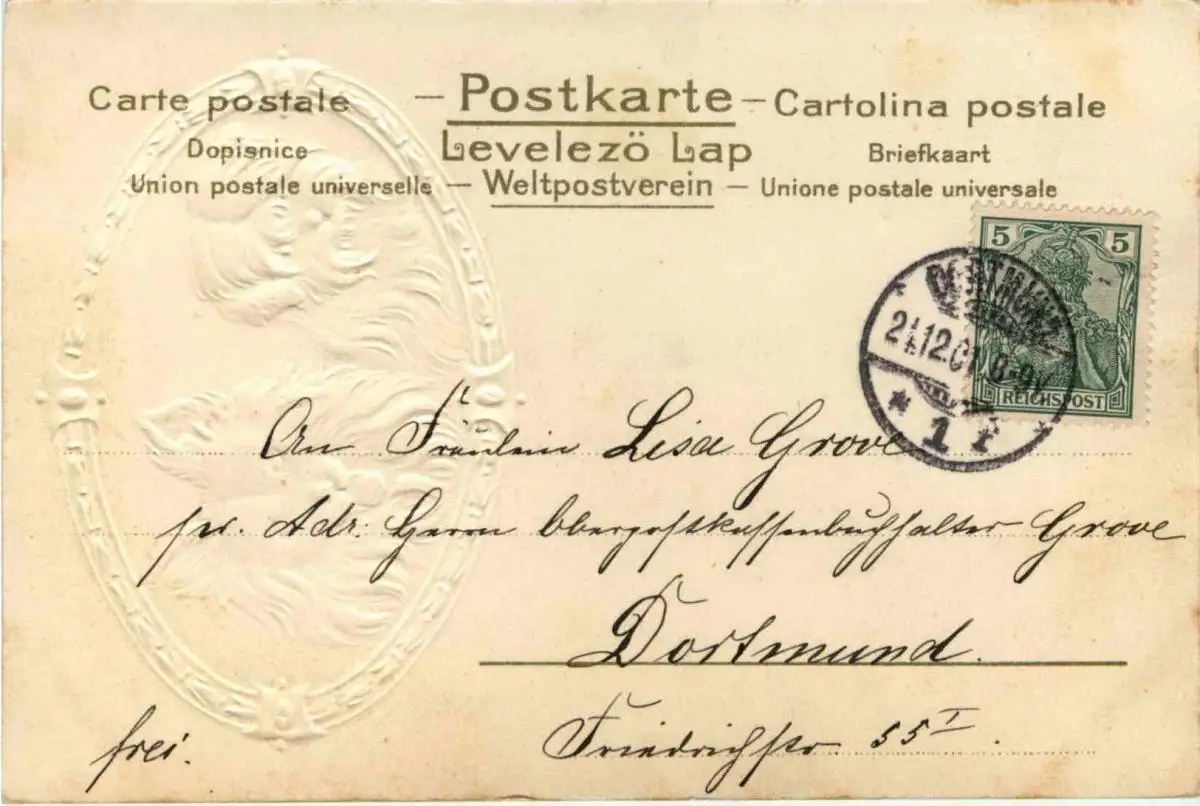 Carte postale — Postkarte — Cartolina postale
Dopisnice Levelező Lap Briefkaart
Union postale universelle — Weltpostverein — Unione postale universale
5 5
REICHSPOST
* 1 r *
An Fräulein Lisa Grove
pr. Adr. Herrn Oberpostkassenbuchhalter Grove
Dortmund.
frei. Friedrichstr 55 I.